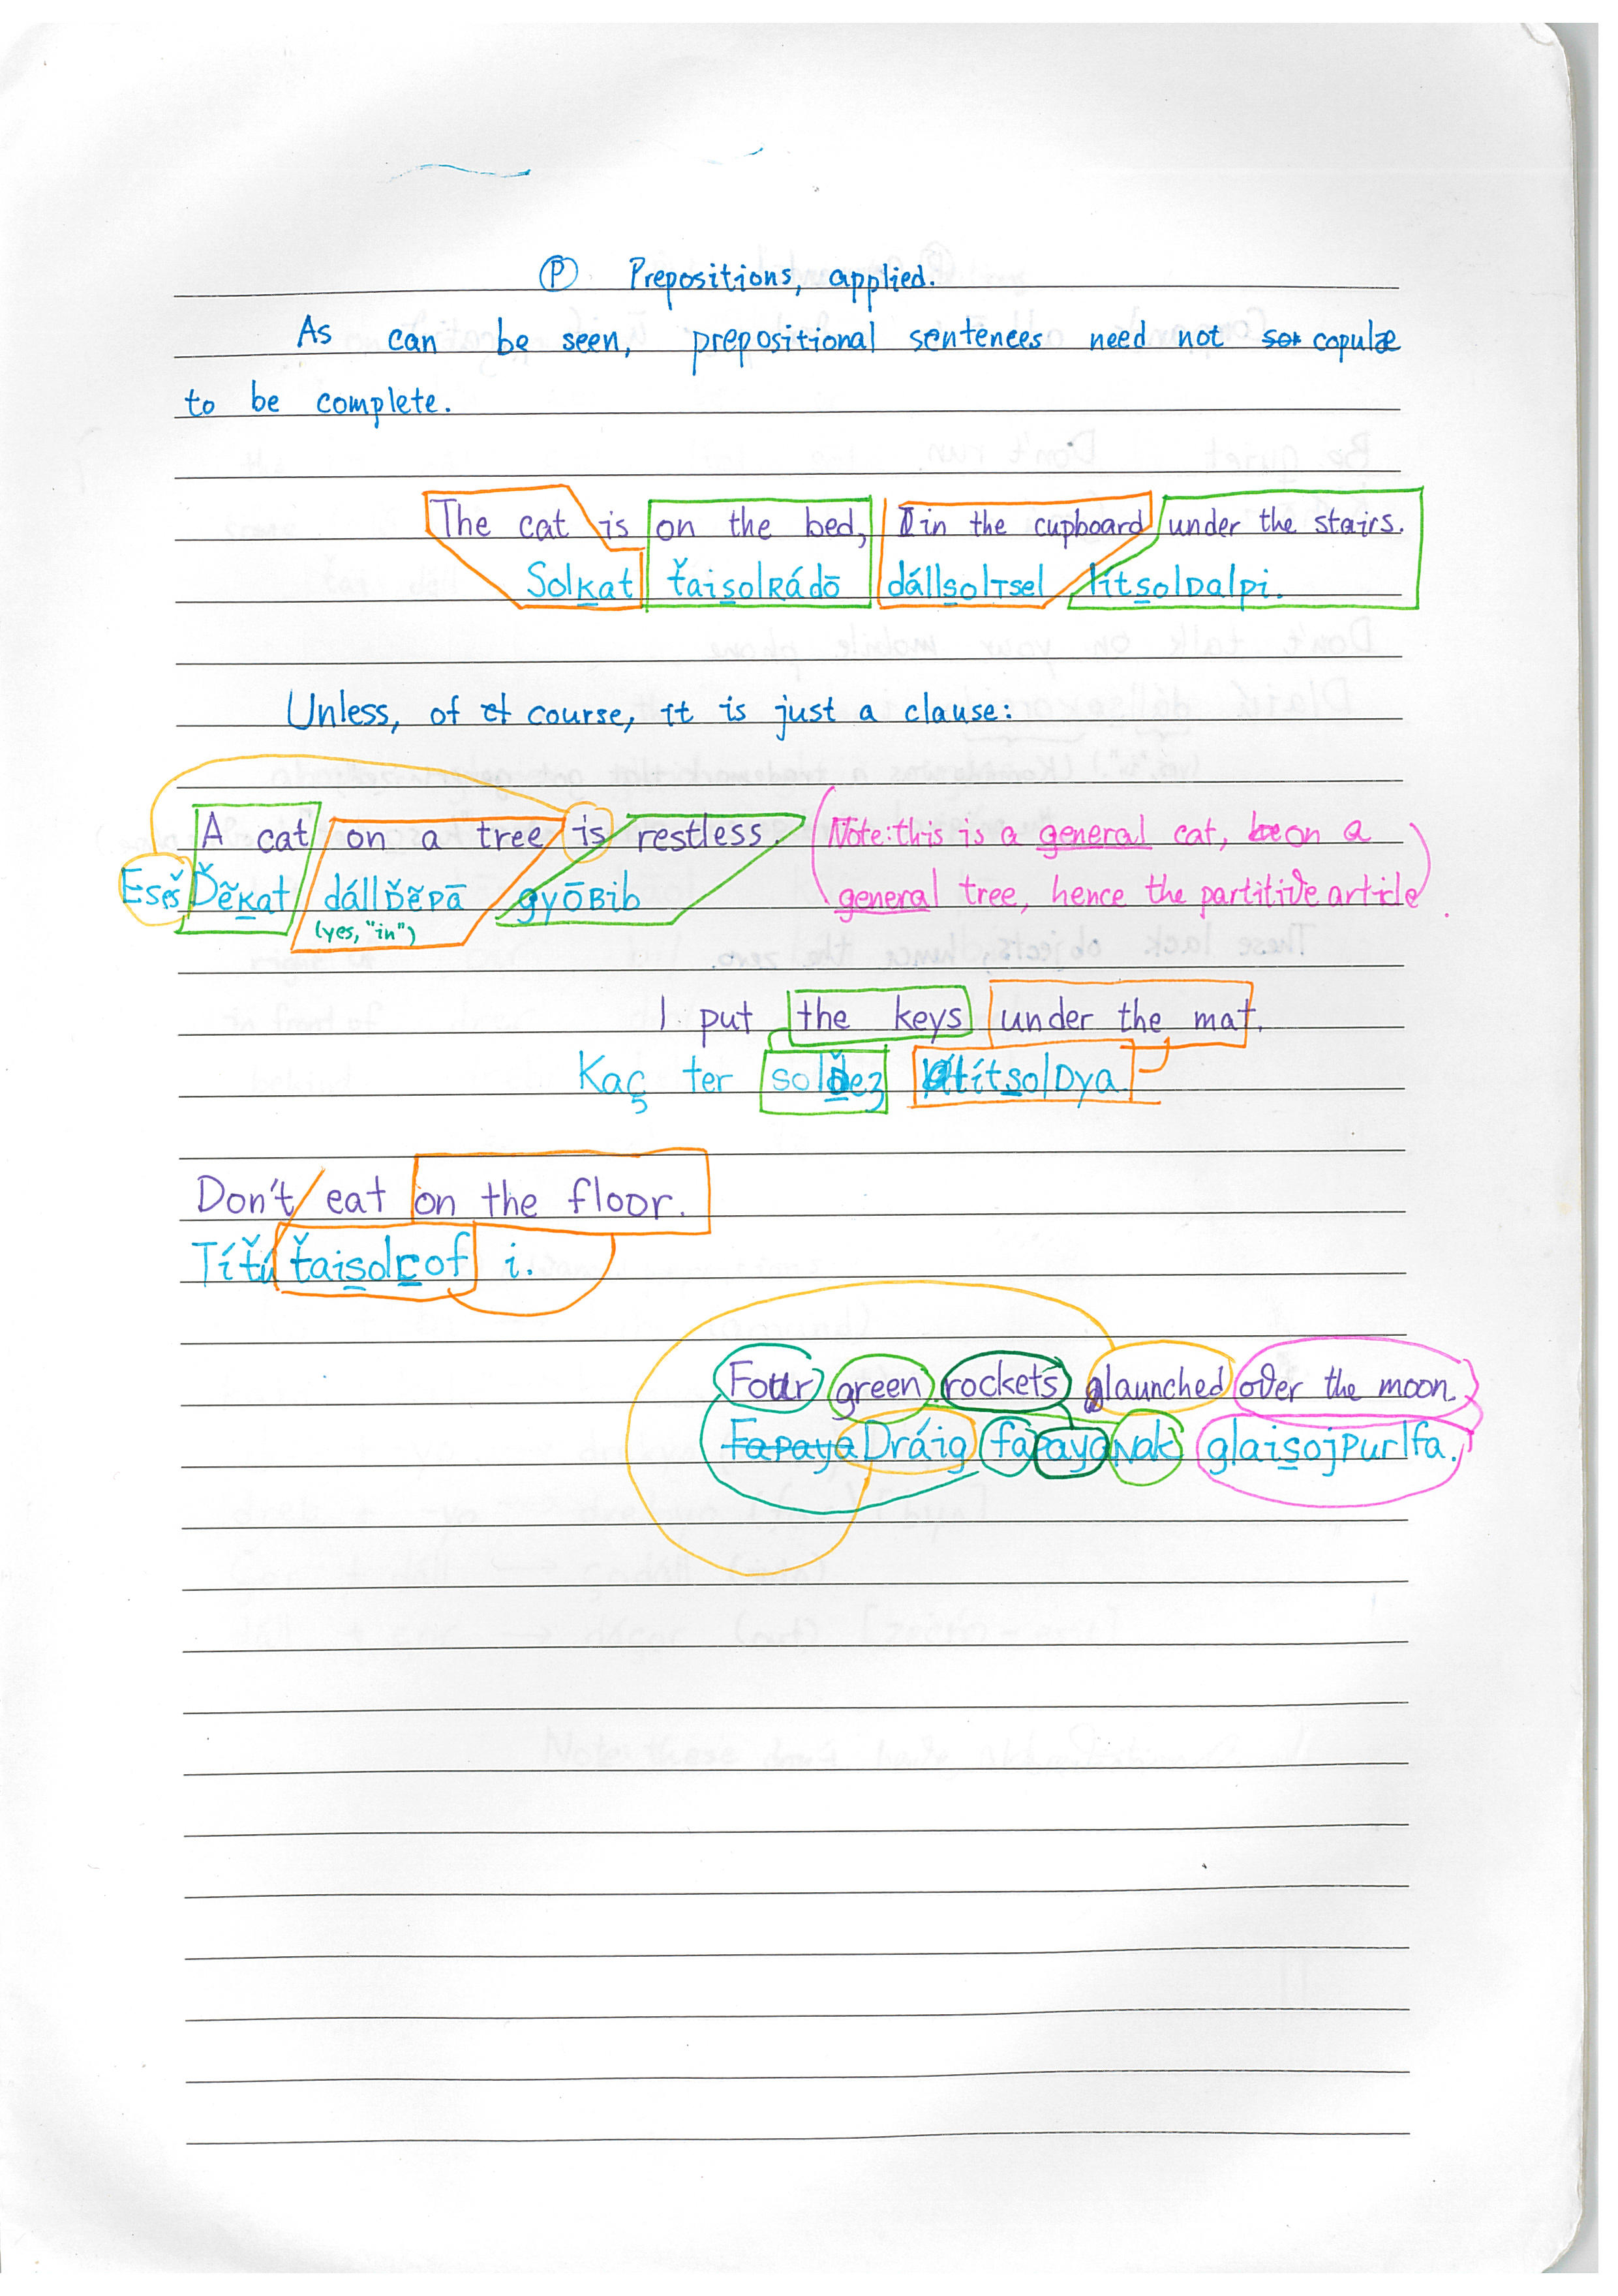 Ⓟ Prepositions, applied.
As can be seen, prepositional sentences need not copulæ
to be complete.
The cat is on the bed, in the cupboard under the stairs.
Solkat ťaisolRádō dállsolTsel lítsolDalpi.
Unless, of course, it is just a clause:
A cat on a tree is restless. (Note: this is a general cat, on a
Eseš Ďěkat dállĎěpā gyōBib general tree, hence the partitive article).
(yes, "in")
I put the keys under the mat.
Kaç ter solĎez lítsolDya.
Don't eat on the floor.
Títú ťaisolcof i.
Four green rockets launched over the moon.
Fapaya Dráig fapayaNak glaisojPurlfa.